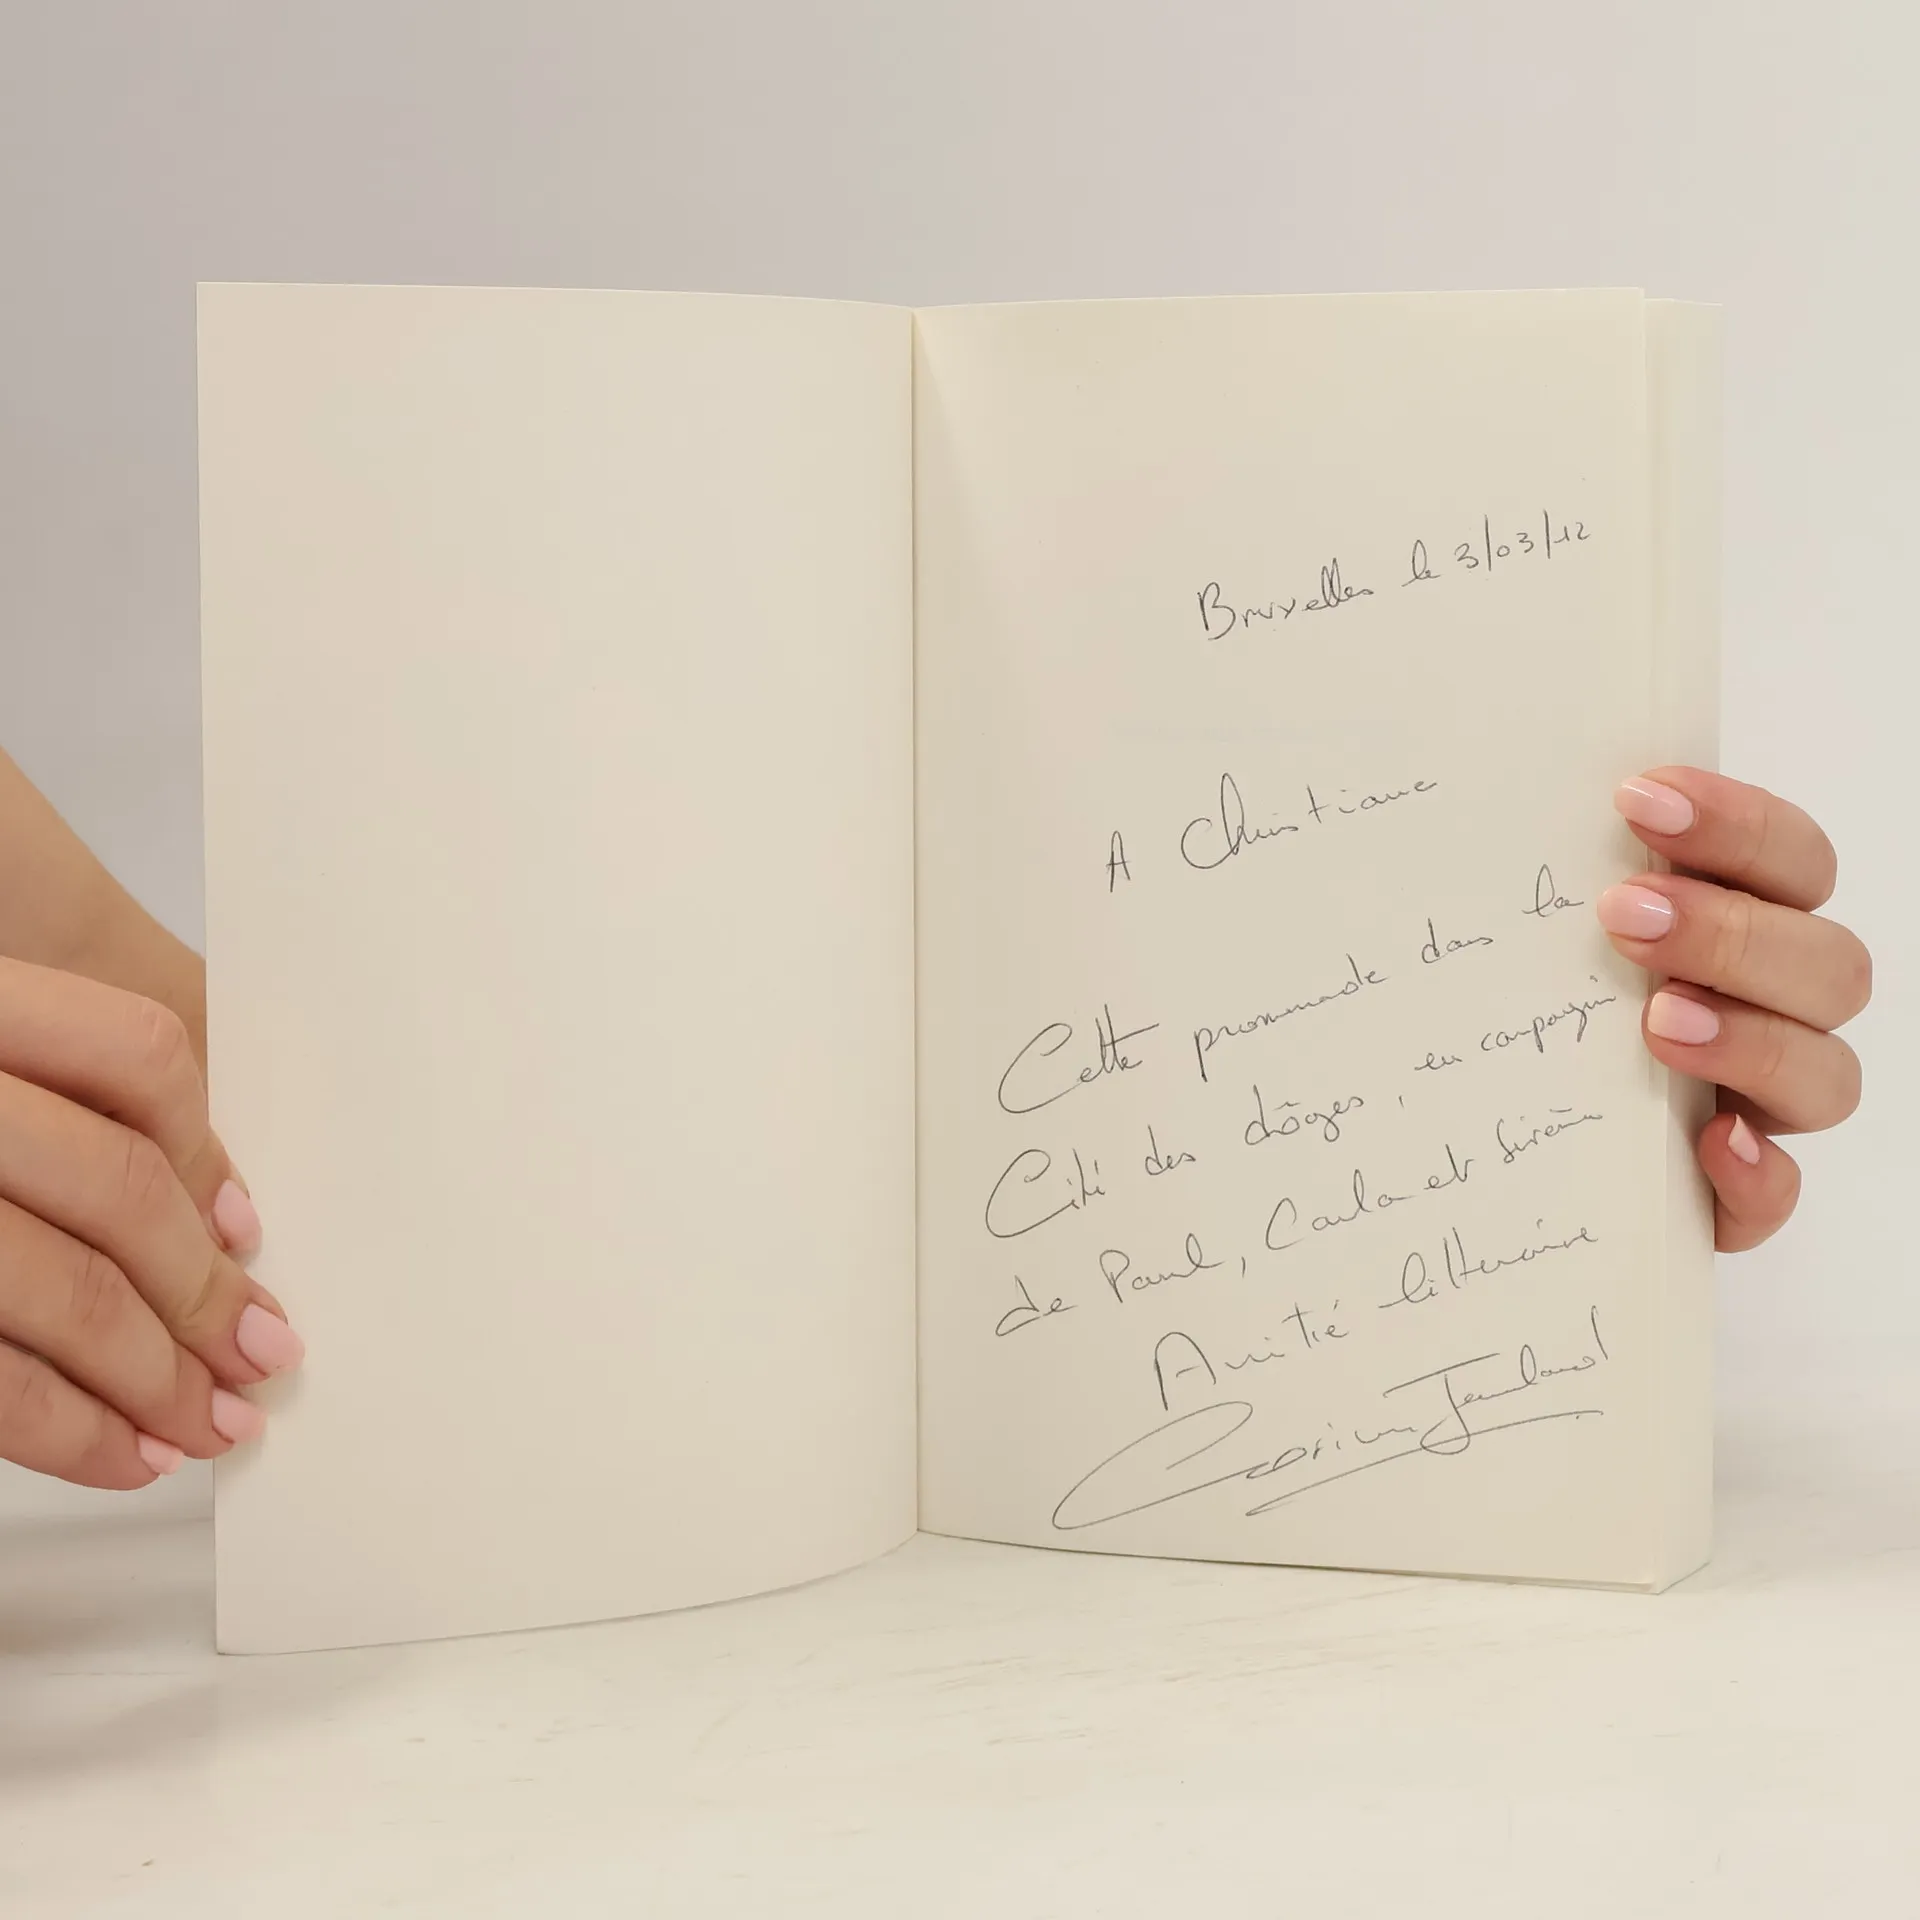 Bruxelles le 3/03/12
A Christiane
Cette promenade dans la
Cité des dôges, en compagnie
de Paul, Carla et
Amitié littéraire